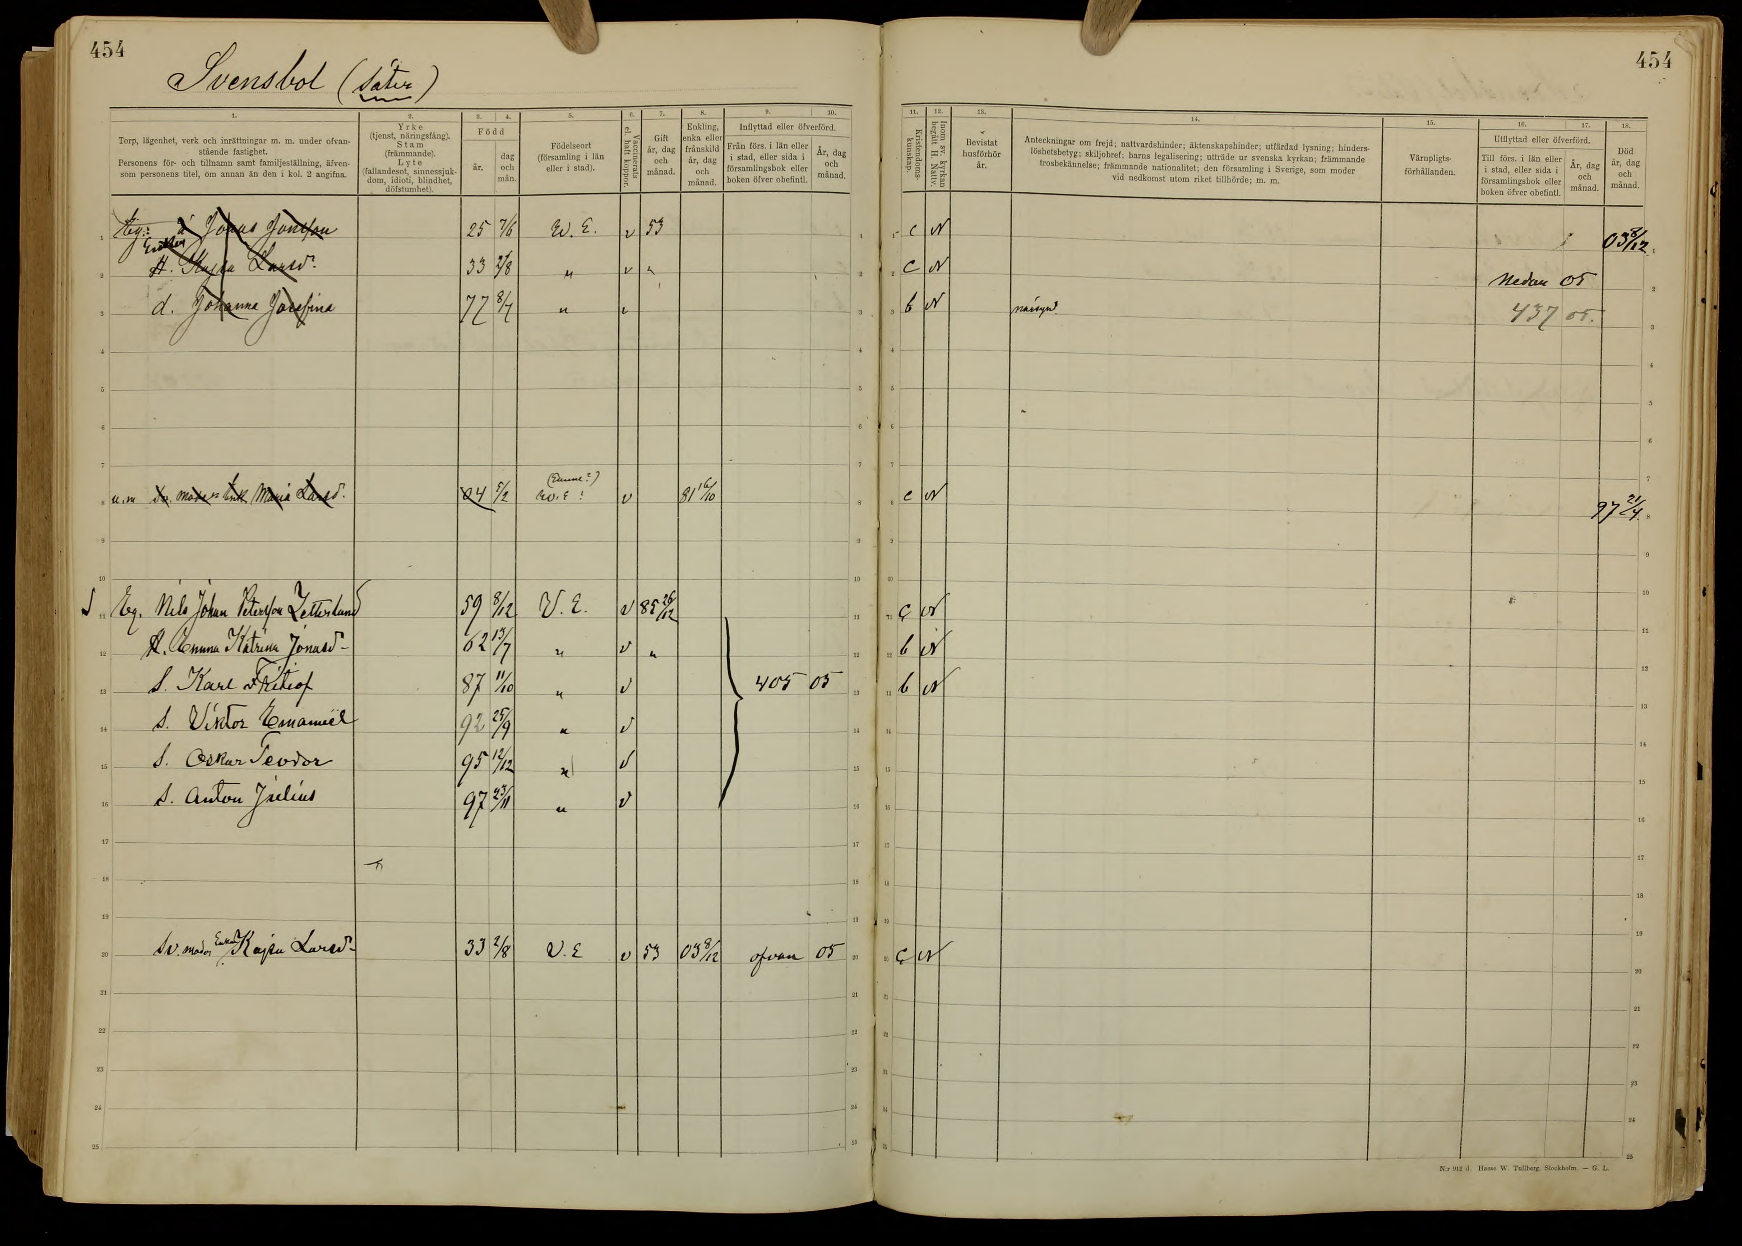 454
454
Svensbol (säter)
1.
Torp, lägenhet, verk och inrättningar m. m. under ofvan-
stående fastighet.
Personens för- och tillnamn samt familjeställning, äfven-
som personens titel, om annan än den i kol. 2 angifna.
2.
Yrke
(tjenst, näringsfång).
Stam
(främmande).
Lyte
(fallandesot, sinnessjuk-
dom, idioti, blindhet,
döfstumhet).
3. 4.
Född
år.
dag
och
mån.
5.
Födelseort
(församling i län
eller i stad).
6.
Vaccinerats
el. haft koppor.
7.
Gift
år, dag
och
månad.
8.
Enkling,
enka eller
frånskild
år, dag
och
månad.
9. 10.
Inflyttad eller öfverförd.
Från förs. i län eller
i stad, eller sida i
församlingsbok eller
boken öfver obefintl.
År, dag
och
månad.
11.
Kristendoms-
kunskap.
12.
Inom sv. kyrkan
begått H. Nattv.
13.
Bevistat
husförhör
år.
14.
Anteckningar om frejd; nattvardshinder; äktenskapshinder; utfärdad lysning; hinders-
löshetsbetyg; skiljobref; barns legalisering; utträde ur svenska kyrkan; främmande
trosbekännelse; främmande nationalitet; den församling i Sverige, som moder
vid nedkomst utom riket tillhörde; m. m.
15.
Värnpligts-
förhållanden.
16. 17.
Utflyttad eller öfverförd.
Till förs. i län eller
i stad, eller sida i
församlingsbok eller
boken öfver obefintl.
År, dag
och
månad.
18.
Död
år, dag
och
månad.
1 Eg. Jonas Jonsson 25 7/6 W. E. v 53 c N 03 8/12
Enkan
2 H. Kajsa Larsd. 33 2/8 " v " c N Nedan 05
3 d. Johanna Josefina 77 8/7 " v b N närsynt 437 05.
(Sunne?)
8 Sv. moder Enk. Maria Larsd. 04 5/2 W. E ! v 81 16/10 c N 97 21/4
11 Eg. Nils Johan Petersson Zetterlund 59 8/12 V. E. v 85 26/12 c N
12 H. Emma Katrina Jonasd. 62 13/7 " v " b N
13 S. Karl Fritiof 87 11/10 " v 405 05 b N
14 S. Viktor Emanuel 92 25/9 " v
15 S. Oskar Teodor 95 12/12 " v
16 S. Anton Julius 97 23/11 " v
20 Sv. moder Enkan Kajsa Larsd. 33 2/8 V. E v 53 03 8/12 ofvan 05 c N
N:r 912 d. Hasse W. Tullberg, Stockholm. — G. L.